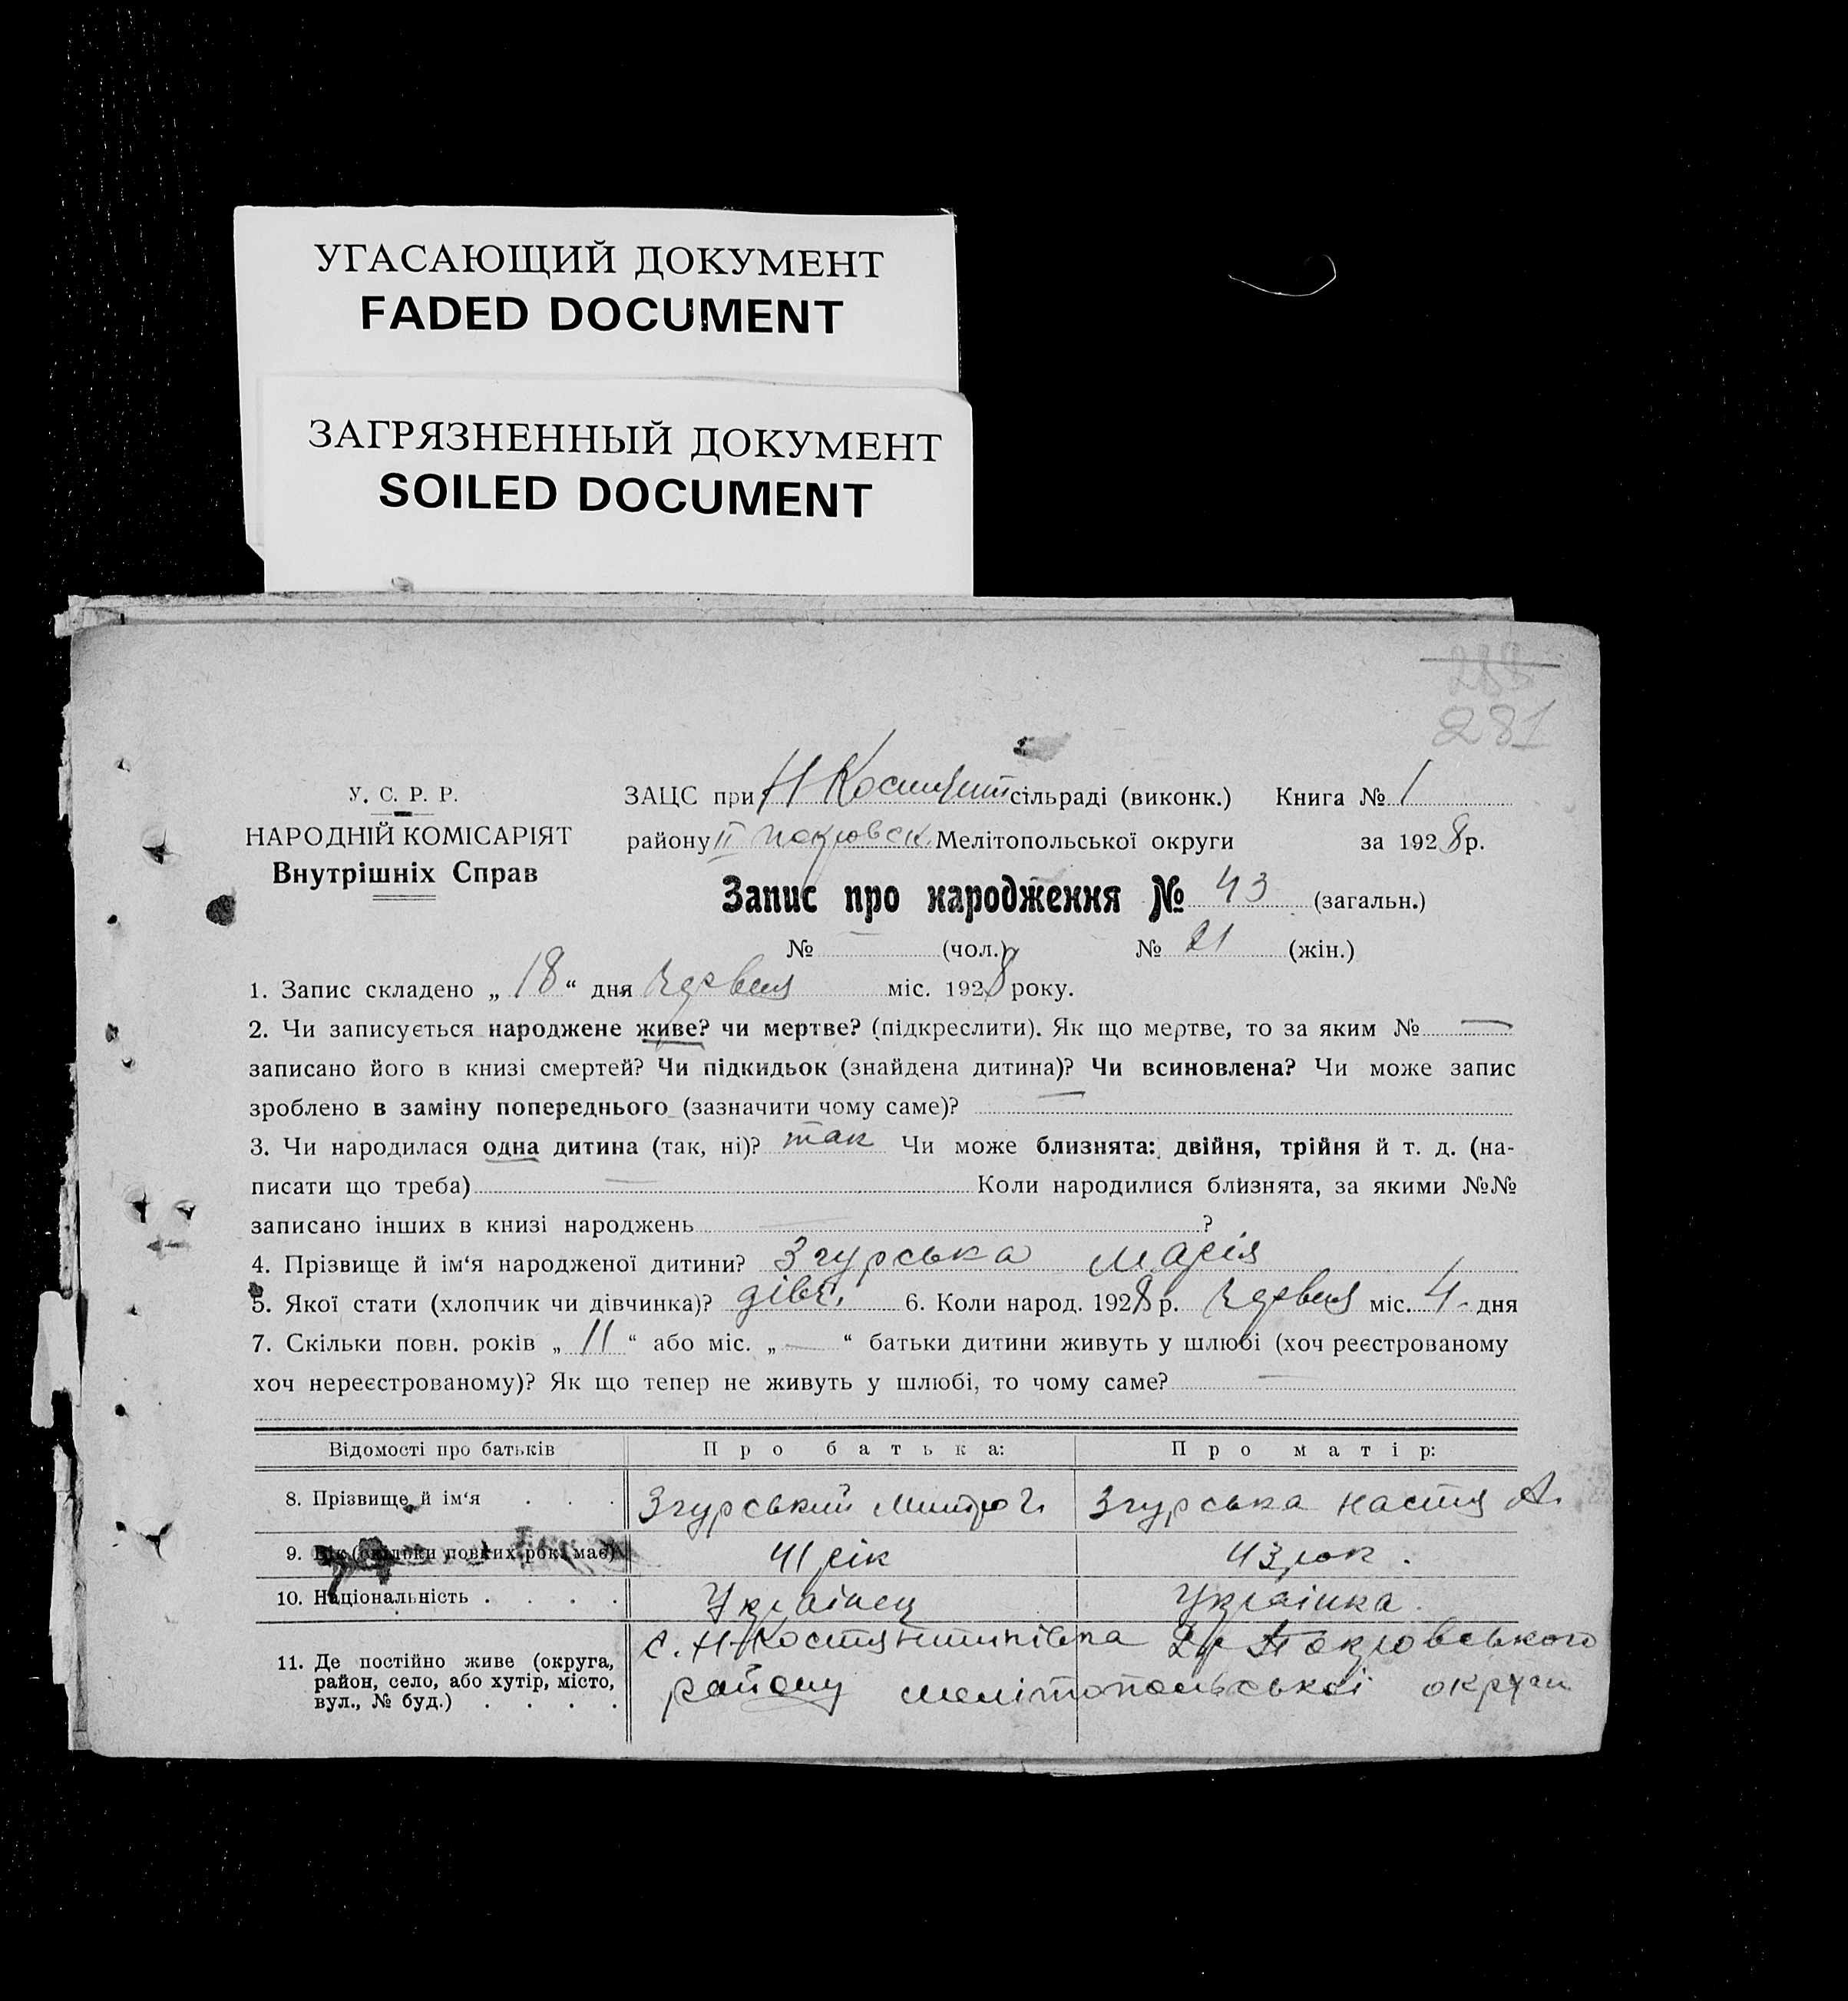 УГАСАЮЩИЙ ДОКУМЕНТ
FADED DOCUMENT
ЗАГРЯЗНЕННЫЙ ДОКУМЕНТ
SOILED DOCUMENT
288
281
У. С. Р. Р.
НАРОДНІЙ КОМІСАРІЯТ
Внутрішніх Справ
ЗАЦС при Н Костянт сільраді (виконк.) Книга № 1
району II покровск. Мелітопольської округи за 1928 р.
Запис про народження № 43 (загальн.)
№ — (чол.) № 21 (жін.)
1. Запис складено „ 18 “ дня червня міс. 1928 року.
2. Чи записується народжене живе? чи мертве? (підкреслити). Як що мертве, то за яким № —
записано його в книзі смертей? Чи підкидьок (знайдена дитина)? Чи всиновлена? Чи може запис
зроблено в заміну попереднього (зазначити чому саме)? —
3. Чи народилася одна дитина (так, ні)? так Чи може близнята: двійня, трійня й т. д. (на-
писати що треба) — Коли народилися близнята, за якими №№
записано інших в книзі народжень — ?
4. Прізвище й ім‘я народженої дитини? Згурська Марія
5. Якої стати (хлопчик чи дівчинка)? дівч. 6. Коли народ. 1928 р. червня міс. 4 - дня
7. Скільки повн. років „ 11 “ або міс. „ — “ батьки дитини живуть у шлюбі (хоч реєстрованому
хоч нереєстрованому)? Як що тепер не живуть у шлюбі, то чому саме? —
Відомості про батьків Про батька: Про матір:
8. Прізвище й ім‘я . . . Згурський Митро Г. Згурська Настя А.
9. Вік (скільки повних рок. має) 41 рік 43 рок.
10. Національність . . . . Українец Українка.
11. Де постійно живе (округа, район, село, або хутір, місто, вул., № буд.) . . . .
с. Н-Костянтинівка 2 Покровського
району мелітопольської округи